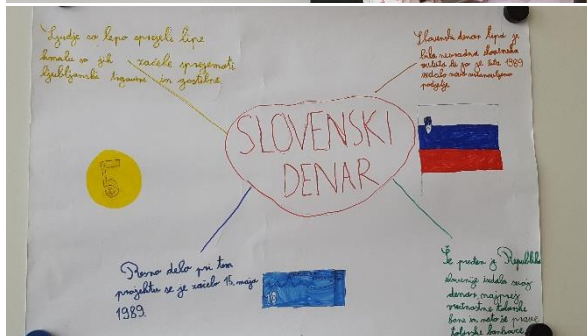 Ljudje so lepo sprejeli lipe
kmalu so jih začele sprejemati
ljubljanske trgovine in gostilne.
Slovenski denar lipa je
bila neuradna slovenska
valuta ki jo je leta 1989
izdalo novo ustanovljeno
podjetje
SLOVENSKI
DENAR
5
Resno delo pri tem
projektu se je začelo 15. maja
1989.
10
Še preden je Republika
Slovenija izdala svoj
denar najprej
vrednostne tolarske
bone in nato še prave
tolarske bankovce